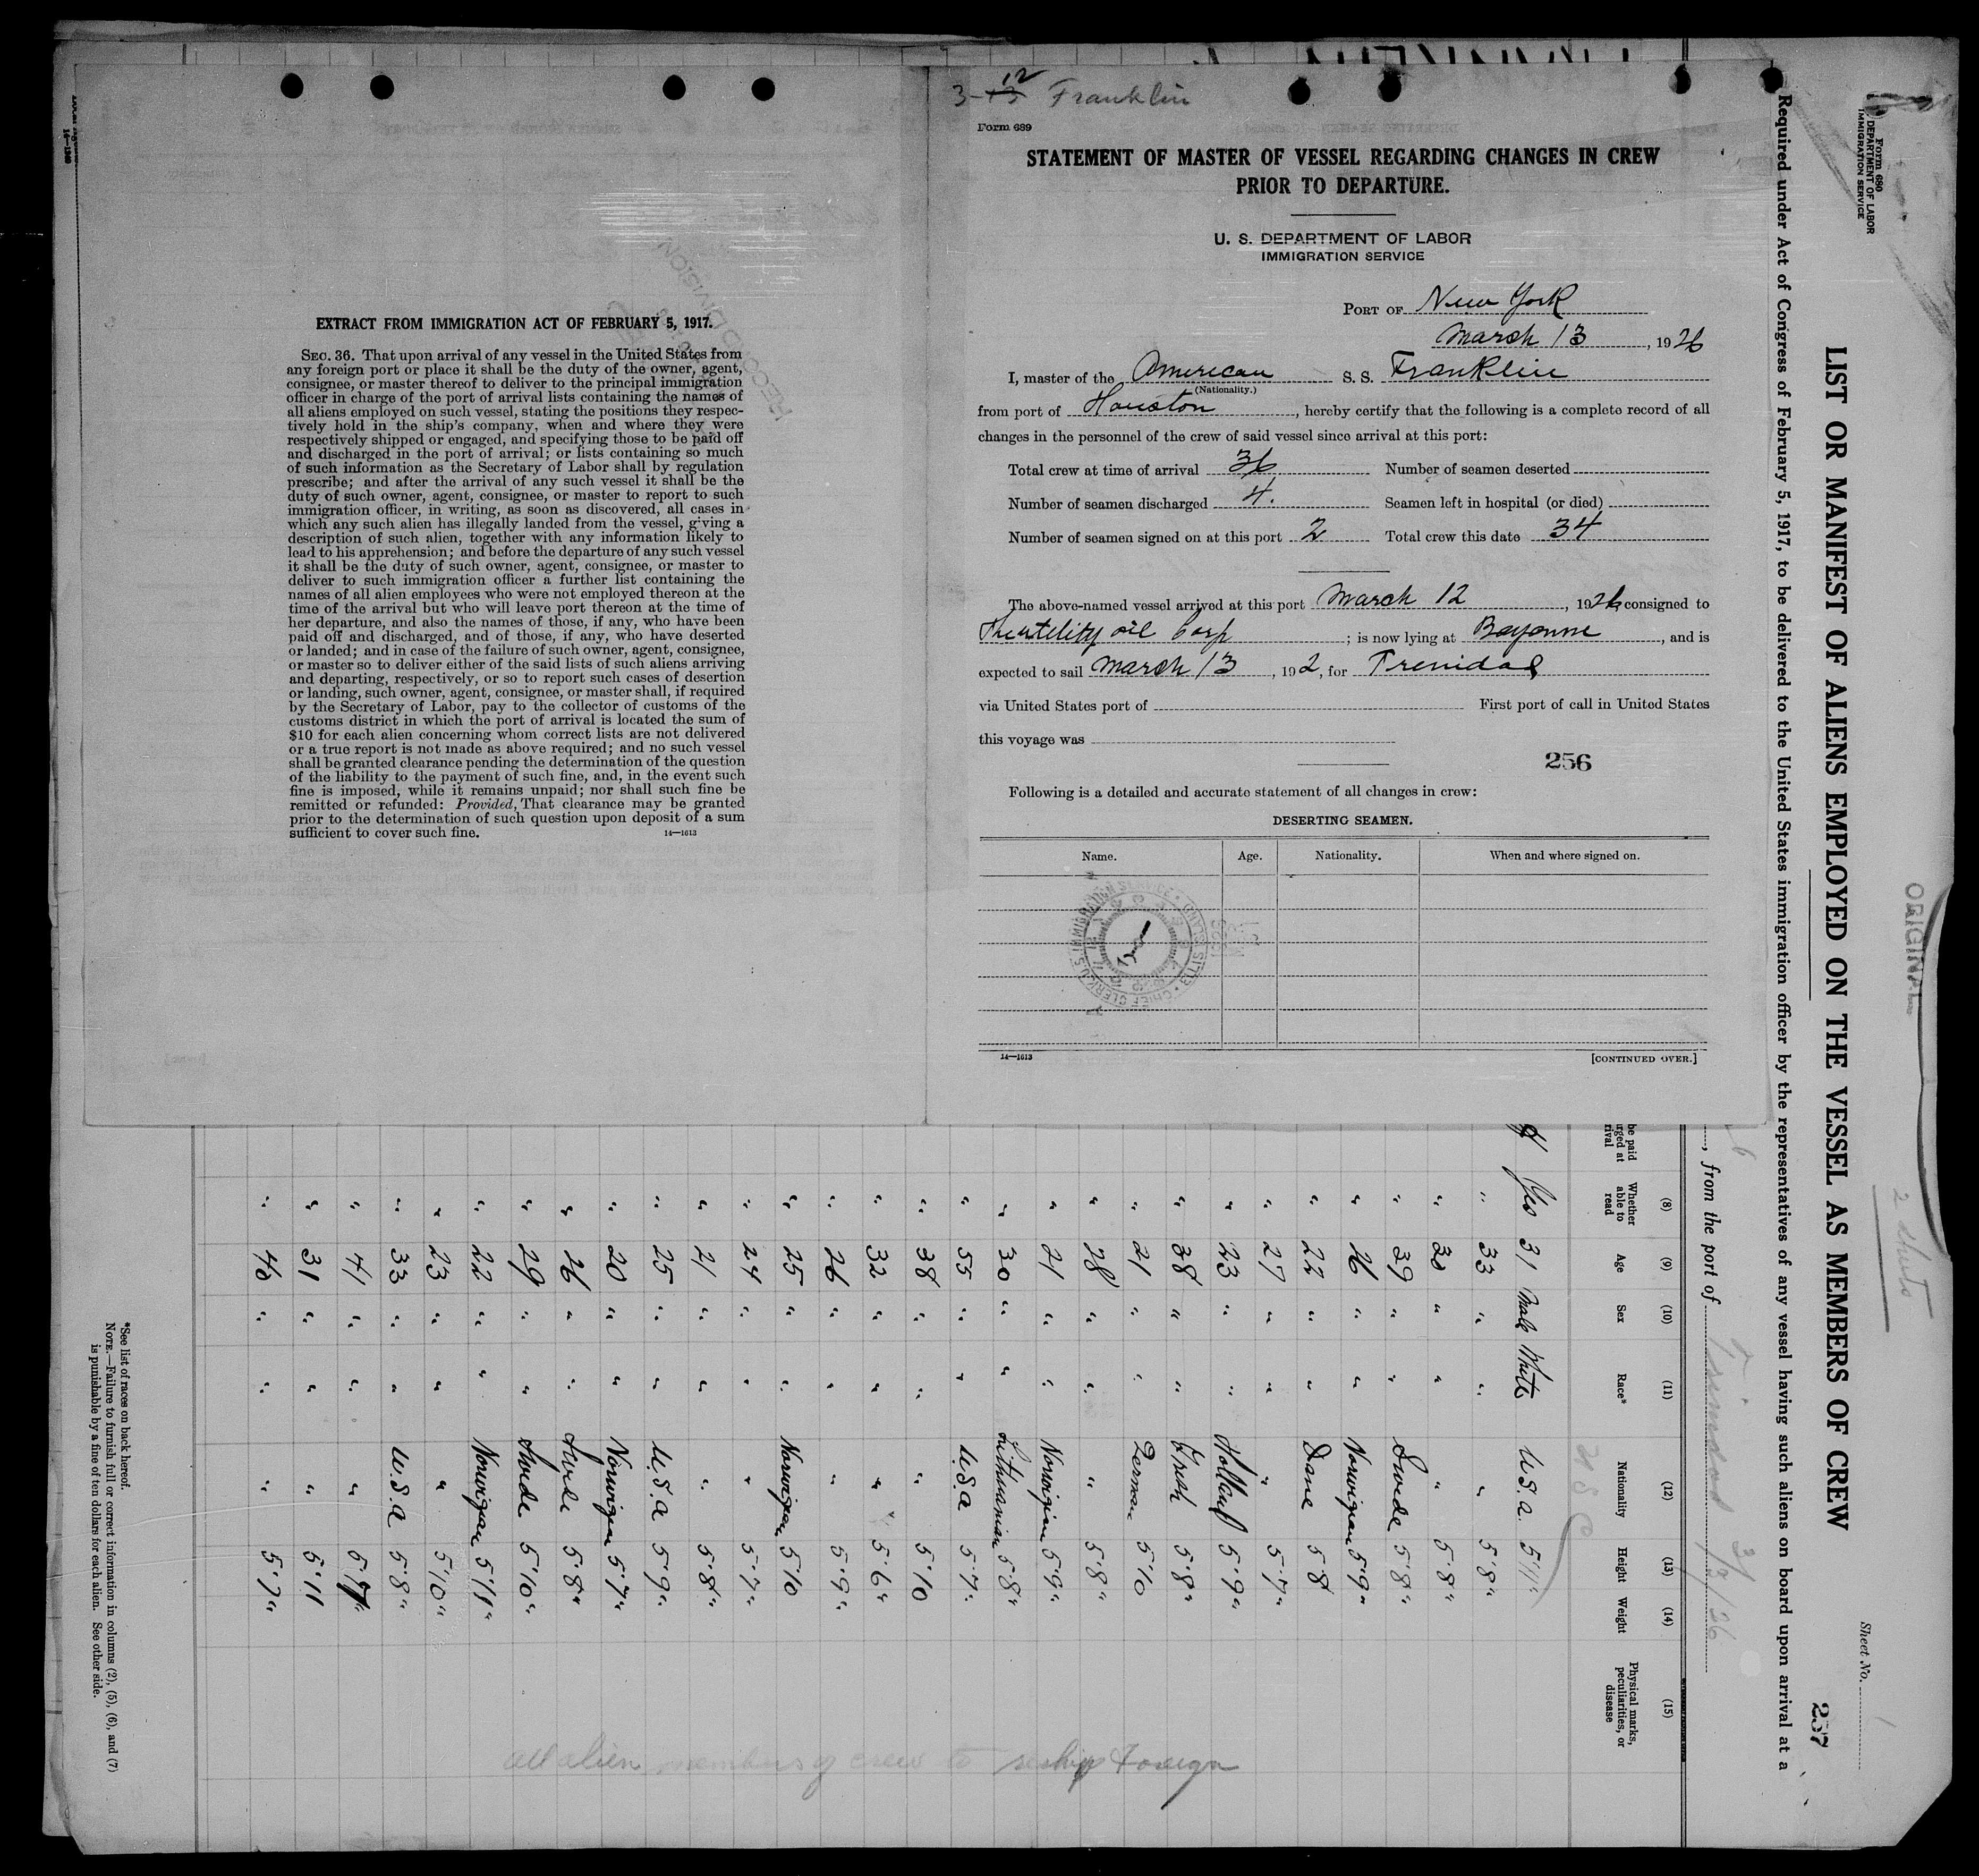 EXTRACT FROM IMMIGRATION ACT OF FEBRUARY 5, 1917.
SEC. 36. That upon arrival of any vessel in the United States from
any foreign port or place it shall be the duty of the owner, agent,
consignee, or master thereof to deliver to the principal immigration
officer in charge of the port of arrival lists containing the names of
all aliens employed on such vessel, stating the positions they respec-
tively hold in the ship's company, when and where they were
respectively shipped or engaged, and specifying those to be paid off
and discharged in the port of arrival; or lists containing so much
of such information as the Secretary of Labor shall by regulation
prescribe; and after the arrival of any such vessel it shall be the
duty of such owner, agent, consignee, or master to report to such
immigration officer, in writing, as soon as discovered, all cases in
which any such alien has illegally landed from the vessel, giving a
description of such alien, together with any information likely to
lead to his apprehension; and before the departure of any such vessel
it shall be the duty of such owner, agent, consignee, or master to
deliver to such immigration officer a further list containing the
names of all alien employees who were not employed thereon at the
time of the arrival but who will leave port thereon at the time of
her departure, and also the names of those, if any, who have been
paid off and discharged, and of those, if any, who have deserted
or landed; and in case of the failure of such owner, agent, consignee,
or master so to deliver either of the said lists of such aliens arriving
and departing, respectively, or so to report such cases of desertion
or landing, such owner, agent, consignee, or master shall, if required
by the Secretary of Labor, pay to the collector of customs of the
customs district in which the port of arrival is located the sum of
$10 for each alien concerning whom correct lists are not delivered
or a true report is not made as above required; and no such vessel
shall be granted clearance pending the determination of the question
of the liability to the payment of such fine, and, in the event such
fine is imposed, while it remains unpaid; nor shall such fine be
remitted or refunded: Provided, That clearance may be granted
prior to the determination of such question upon deposit of a sum
sufficient to cover such fine. 14—1613
3-13 12 Franklin
Form 689
STATEMENT OF MASTER OF VESSEL REGARDING CHANGES IN CREW
PRIOR TO DEPARTURE.
U. S. DEPARTMENT OF LABOR
IMMIGRATION SERVICE
PORT OF New York
March 13, 1926
I, master of the American S. S. Franklin
(Nationality.)
from port of Houston, hereby certify that the following is a complete record of all
changes in the personnel of the crew of said vessel since arrival at this port:
Total crew at time of arrival 36 Number of seamen deserted
Number of seamen discharged 4. Seamen left in hospital (or died)
Number of seamen signed on at this port 2 Total crew this date 34
The above-named vessel arrived at this port March 12, 1926 consigned to
oil Corp; is now lying at Bayonne, and is
expected to sail March 13, 192, for Trenidad
via United States port of First port of call in United States
this voyage was
256
Following is a detailed and accurate statement of all changes in crew:
DESERTING SEAMEN.
Name. Age. Nationality. When and where signed on.
14—1613 [CONTINUED OVER.]
Form 680
DEPARTMENT OF LABOR
IMMIGRATION SERVICE
ORIGINAL
Sheet No.
LIST OR MANIFEST OF ALIENS EMPLOYED ON THE VESSEL AS MEMBERS OF CREW
257
Required under Act of Congress of February 5, 1917, to be delivered to the United States immigration officer by the representatives of any vessel having such aliens on board upon arrival at a
, from the port of Trinidad 3/2/26
(8) (9) (10) (11) (12) (13) (14) (15)
Whether able to read Age Sex Race* Nationality Height Weight Physical marks, peculiarities, or disease
Yes 31 Male White U.S.A. 5'11"
" 33 " " " 5'8"
" 30 " " " 5'8"
" 39 " " Swede 5'8"
" 26 " " Norwigian 5'9"
" 22 " " Dane 5'8
" 27 " " " 5'7"
" 23 " " Holland 5'9"
" 38 " " Irish 5'8"
" 21 " " German 5'10
" 28 " " " 5'8"
" 21 " " Norwigian 5'9"
" 30 " " Lithuanian 5'8"
" 55 " " U.S.A 5'7"
" 38 " " " 5'10
" 32 " " " 5'6"
" 26 " " " 5'9"
" 25 " " Norwigian 5'10
" 24 " " " 5'7"
" 21 " " " 5'8"
" 25 " " U.S.A 5'9"
" 20 " " Norwigian 5'7"
" 26 " " Swede 5'8"
" 29 " " Swede 5'10"
" 22 " " Norwigian 5'11"
" 23 " " " 5'10"
" 33 " " U.S.A 5'8"
" 41 " " "
" 31 " " " 5'11
" 40 " " " 5'7"
all alien members of crew to reship Foreign
*See list of races on back hereof.
NOTE.—Failure to furnish full or correct information in columns (2), (5), (6), and (7)
is punishable by a fine of ten dollars for each alien. See other side.